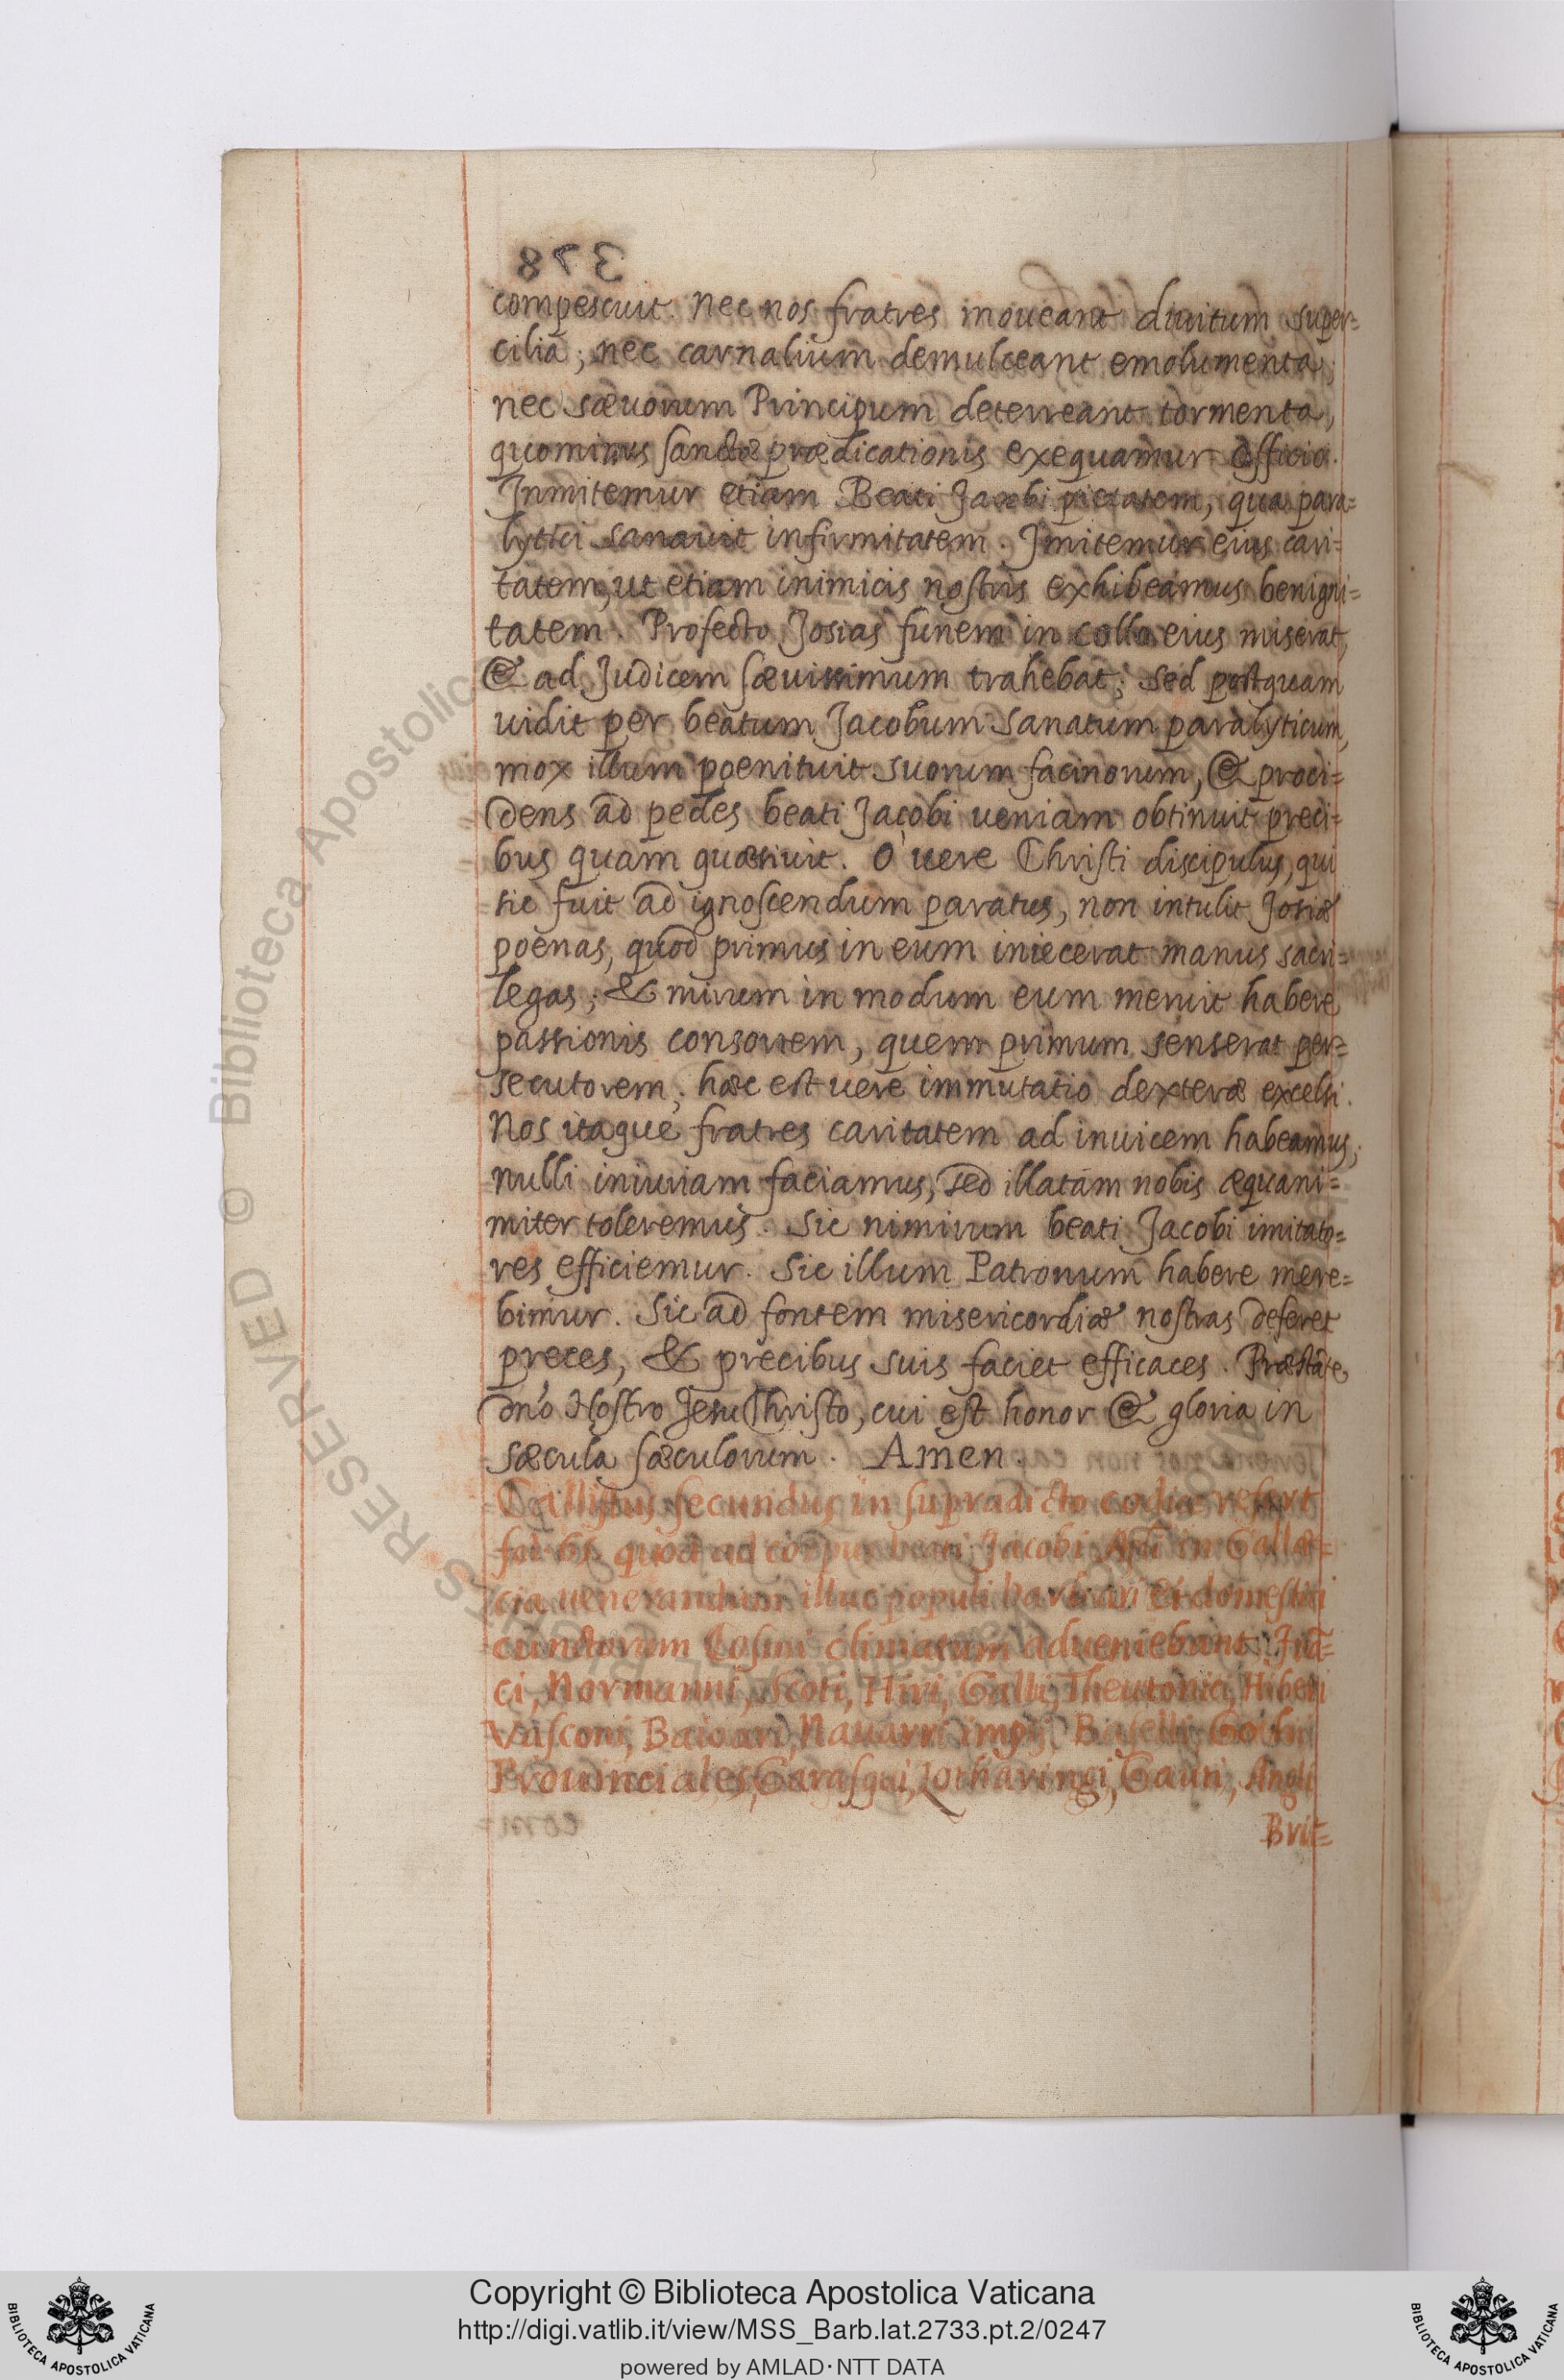 compescuit. Nec nos fratres moueant diuitum super=
cilia; nec carnalium demulceant emolumenta;
nec sæuorum Principum deterreant tormenta,
quominus sanctæ prædicationis exequamur officia.
Inmitemur etiam Beati Jacobi pietatem, qua para=
lytici sanauit infirmitatem. Jmitemur eius cari=
tatem, ut etiam inimicis nostris exhibeamus benigni=
tatem. Profecto Josias funem in collo eius miserat,
& ad Judicem sæuissimum trahebat; sed postquam
uidit per beatum Jacobum sanatum paralyticum,
mox illum poenituit suorum facinorum, & proci=
dens ad pedes beati Jacobi ueniam obtinuit preci=
bus quam quæsiuit. O' uere Christi discipulus, qui
sic fuit ad ignoscendum paratus, non intulit Josiæ
poenas, quod primus in eum iniecerat manus sacri=
legas; & mirum in modum eum meruit habere
passionis consortem, quem primum senserat per=
secutorem; hæc est uere immutatio dexteræ excelsi.
Nos itaque fratres caritatem ad inuicem habeamus,
nulli iniuriam faciamus, sed illatam nobis æquani=
miter toleremus. Sic nimirum beati Jacobi imitato=
res efficiemur. Sic illum Patronum habere mere=
bimur. Sic ad fontem misericordiæ nostras deferet
preces, & precibus suis faciet efficaces. Præstante
dnō Nostro Jesu Christo, cui est honor & gloria in
sæcula sæculorum. Amen.
Callistus secundus in supradicto codice refert
quod ad corpus beati Jacobi Apli in Gallæ=
cia uenerandum illuc populi barbari et domestici
cunctorum Cosmi climatum adueniebant.
ci, Normanni, Scoti, Hiri, Galli, Theutonici, Hiberi
Vasconi, Baioari, Nauarri impij, Baselli, Gothi
Prouinciales, Garasqui, Lotharingi, Gauti, Angli
Brit=
Copyright © Biblioteca Apostolica Vaticana
http://digi.vatlib.it/view/MSS_Barb.lat.2733.pt.2/0247
powered by AMLAD·NTT DATA